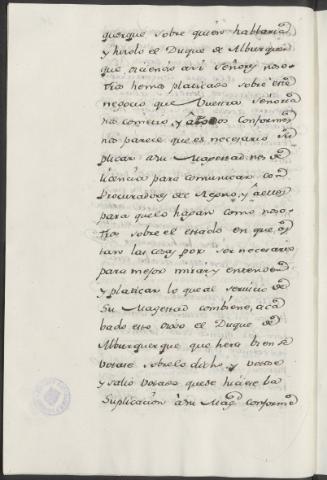 querque sobre quien hablaria
y hirolo el Duque de Alburquer
que diciendo assi Señores noso-
tros hemos platicado sobre este
negocio que Vuestra Señoria
nos cometio, y a todos conformes
nos parece que es necesario su
plicar a su Magestad nos de
licencia para comunicar con
Procuradores del Reyno, y a ellos
para que lo hagan como noso-
tros sobre el estado en que es
tan las cosas por ser necesario
para mejor mirar y entender
y platicar lo que al servicio de
Su Magestad combiene, aca
bado esto dixo el Duque de
Alburquerque que hera bien se
votase sobre lo dicho, y votose
y salio votado que se hiciese la
Suplicacion a su Magd conforme